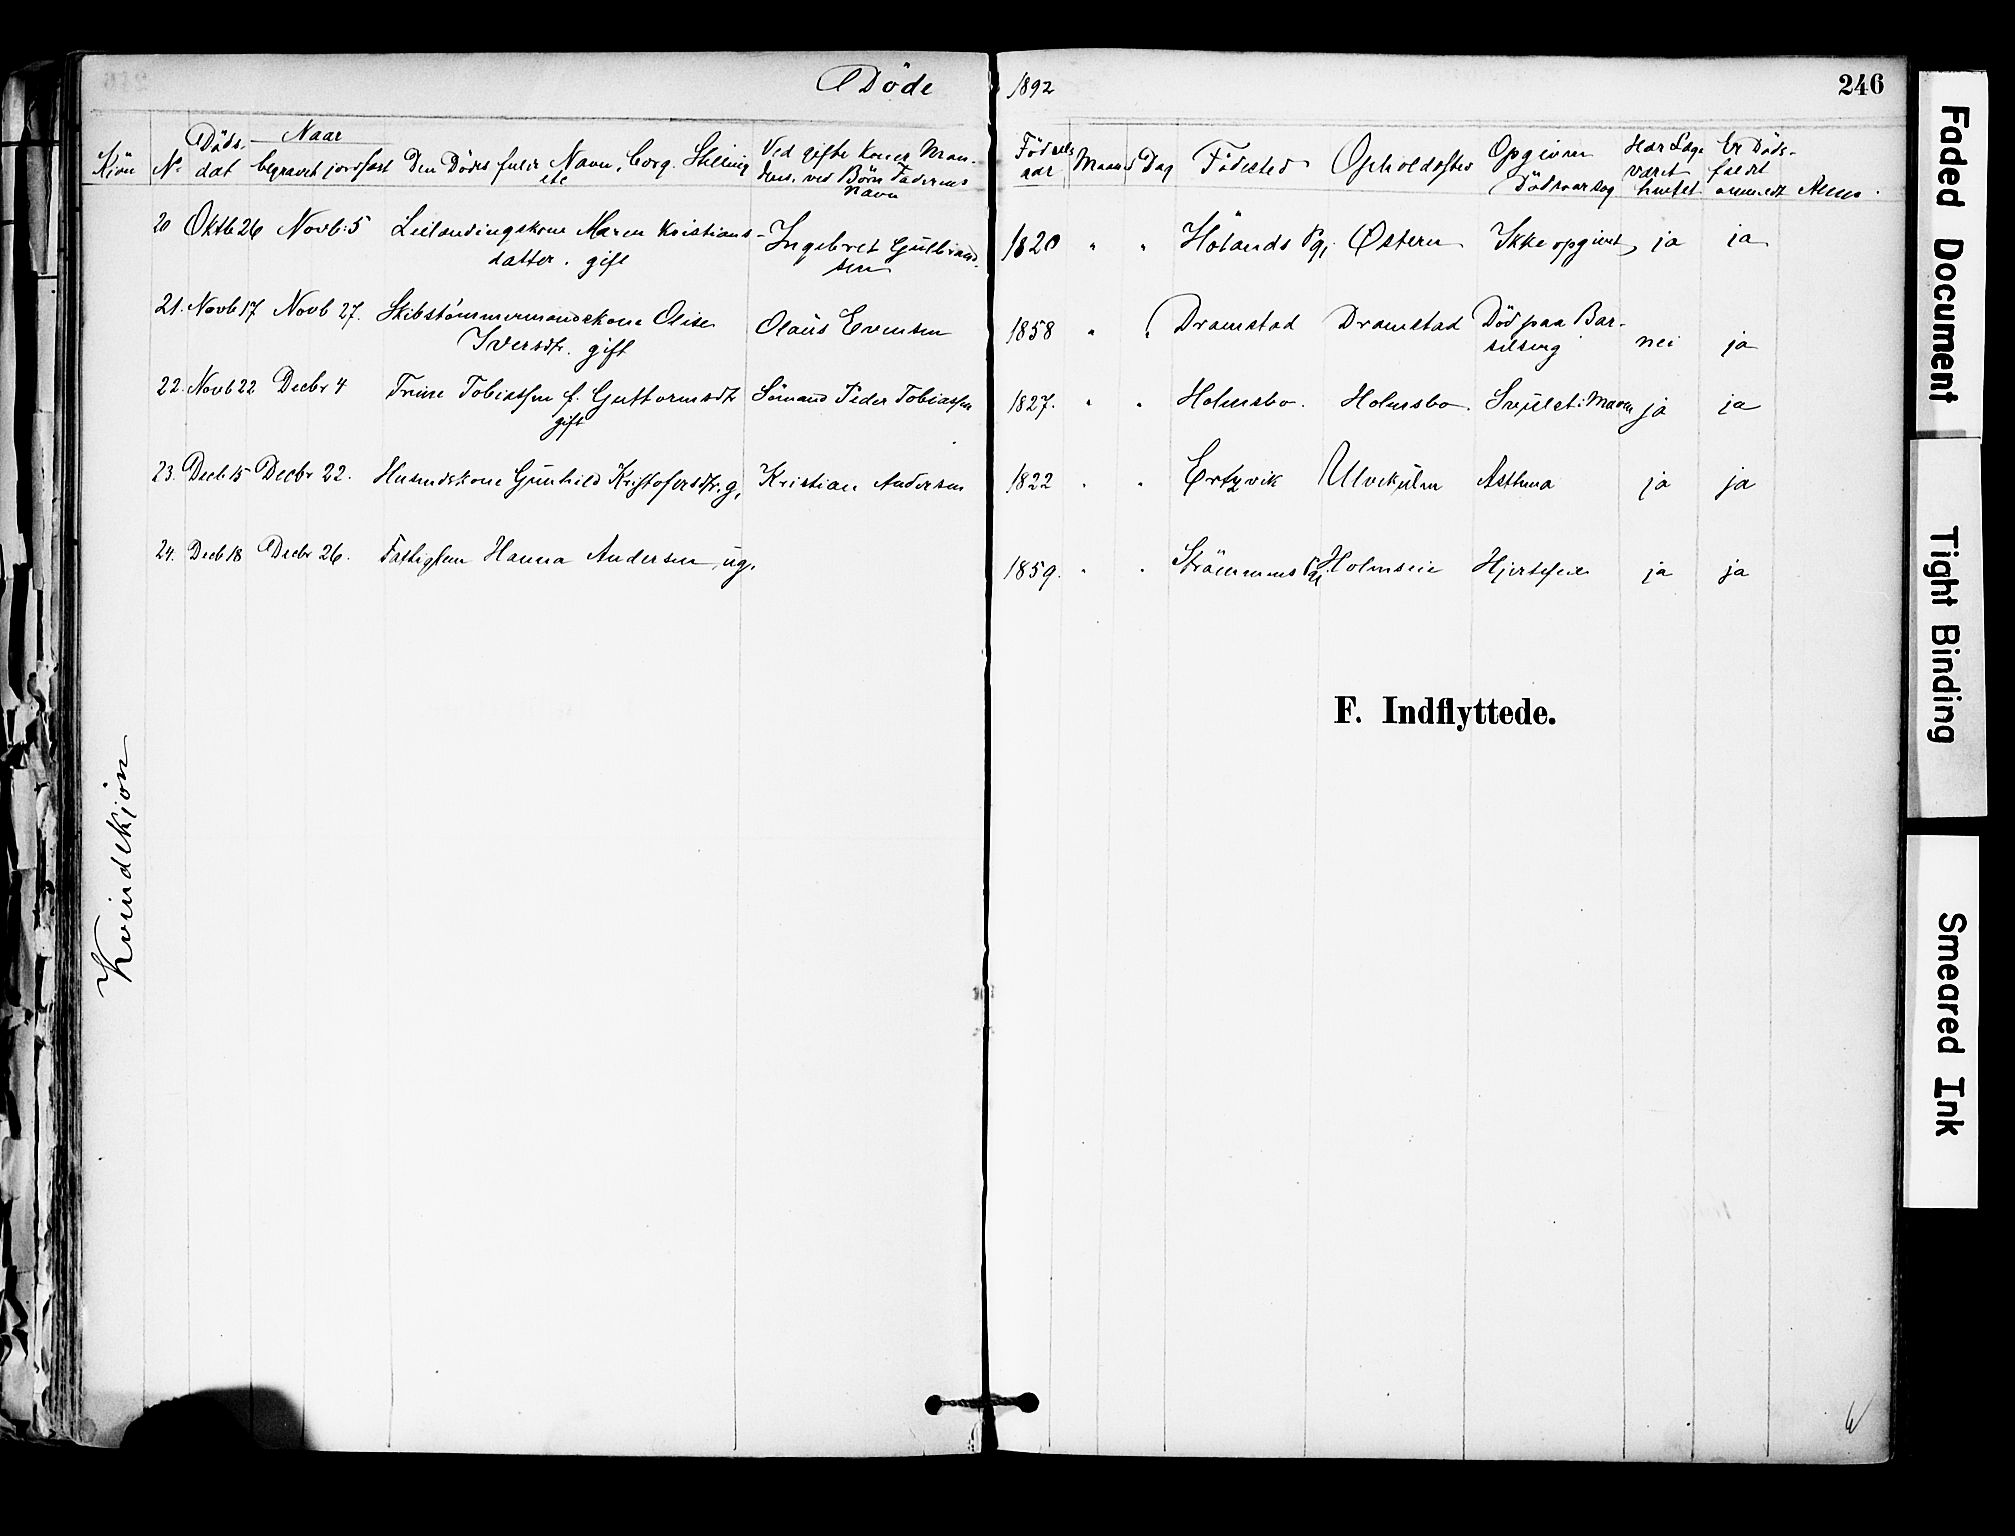 Döde 1892 246
Kjön No Döds- dat Naar begravet jordfæst Den Dödes fulde Navn, borg. Stilling etc Ved gifte Koner Man- dens, ved Börn Faderens Navn Födsels aar Maaned Dag Födested Opholdssted Opgiven Dödsaarsag Har Læge været hentet Er Döds- faldet anmeldt Anm.
20 Oktb 26 Novb. 5 Leilændingskone Maren Kristians- Ingebret Gulbrand- 1820 " " Hölands Pgj Østern Ikke opgivet ja ja
datter. gift sen
21. Novb 17 Novb 27. Skibstömmermandskone Olise Olaüs Evensen 1858 " " Dramstad Dramstad Död paa Bar- nei ja
Iversdtr. gift selseng
22. Novb 22 Decbr 4 Trine Tobiassen f. Guttormsdtr Sömand Peder Tobiassen 1827. " " Holmsbo. Holmsbo. Svulst i Maven ja ja
gift
23. Decb 15 Decbr 22. Husmdskone Gunhild Kristofersdtr. g. Kristian Andersen 1822 " " Ertzvik Ulvekülen Asthma ja ja
24. Decb 18 Decbr 26. Fattiglem Hanna Andersen, ug. 1859. " " Strömmens Pgj. Holmseie Hjertefeil ja ja
Kvindekjön
F. Indflyttede.
Faded Document
Tight Binding
Smeared Ink